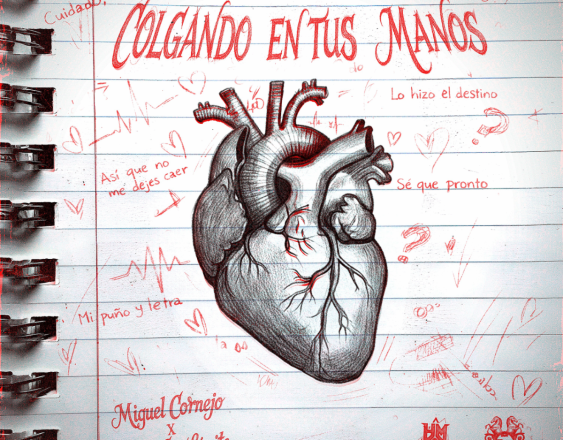 Cuidado,
COLGANDO EN TUS MANOS
Lo hizo el destino
Así que no
me dejes caer
Sé que pronto
Mi puño y letra
Miguel Cornejo
X